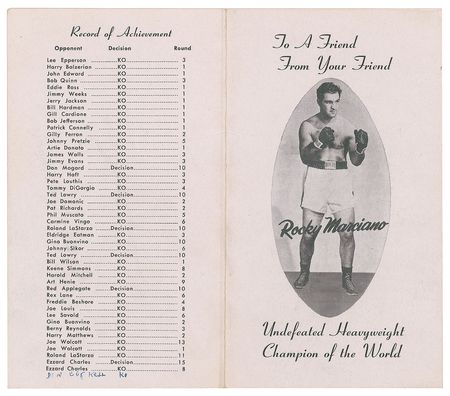 Record of Achievement
Opponent Decision Round
Lee Epperson KO 3
Harry Balzerian KO 1
John Edward KO 1
Bob Quinn KO 3
Eddie Ross KO 1
Jimmy Weeks KO 1
Jerry Jackson KO 1
Bill Hardman KO 1
Gill Cardione KO 1
Bob Jefferson KO 2
Patrick Connelly KO 1
Gilly Ferron KO 2
Johnny Pretzie KO 5
Artie Donato KO 1
James Walls KO 3
Jimmy Evans KO 3
Don Mogard Decision 10
Harry Haft KO 3
Pete Louthis KO 3
Tommy DiGorgio KO 4
Ted Lowry Decision 10
Joe Domonic KO 2
Pat Richards KO 2
Phil Muscato KO 5
Carmine Vingo KO 6
Roland LaStarza Decision 10
Eldridge Eatman KO 3
Gino Buonvino KO 10
Johnny Sikor KO 6
Ted Lowry Decision 10
Bill Wilson KO 1
Keene Simmons KO 8
Harold Mitchell KO 2
Art Henie KO 9
Red Applegate Decision 10
Rex Lane KO 6
Freddie Beshore KO 4
Joe Louis KO 8
Lee Savold KO 6
Gino Buonvino KO 2
Berny Reynolds KO 3
Harry Matthews KO 2
Joe Walcott KO 13
Joe Walcott KO 1
Roland LaStarza KO 11
Ezzard Charles Decision 15
Ezzard Charles KO 8
Don Ko
To A Friend
From Your Friend
Rocky Marciano
Undefeated Heavyweight
Champion of the World